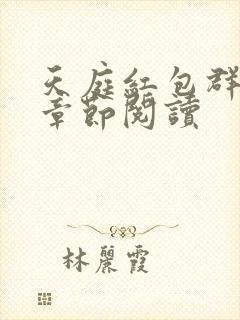 天庭紅包群
章節閱讀
林麗霞